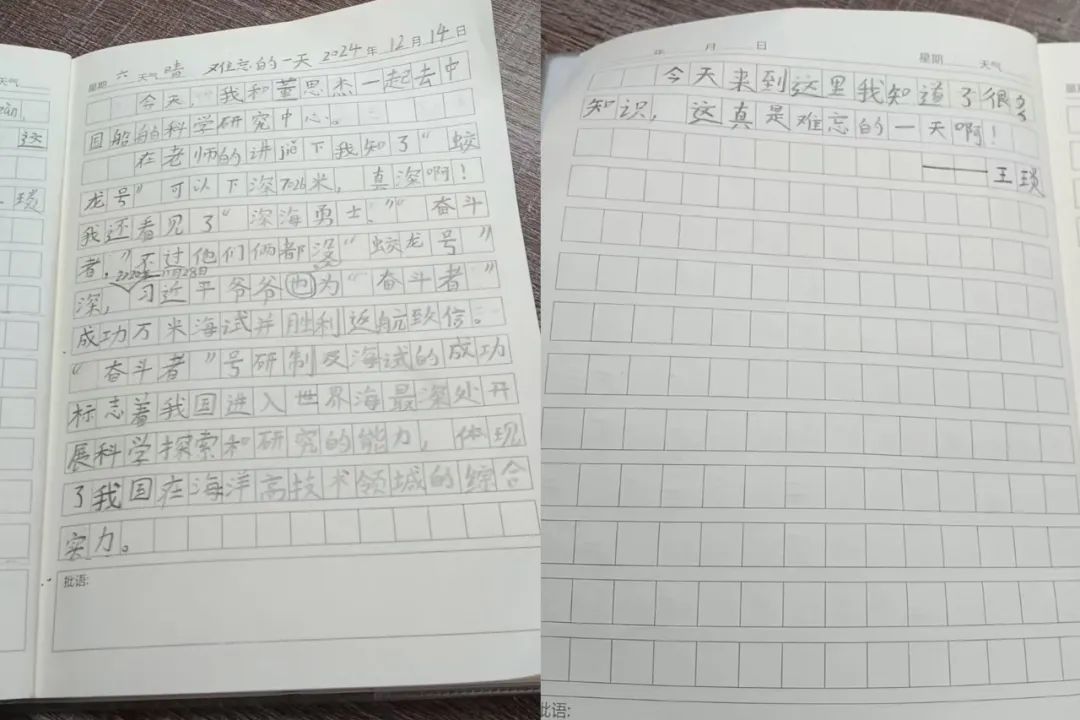 zàn,
这
琐
星期 六 天气 晴 难忘的一天 2024年12月14日
今天,我和董思杰一起去中
国船舶科学研究中心。
在老师的讲解下我知了“蛟
龙号”可以下深7026米,真深啊!
我还看见了“深海勇士、”“奋斗
者,”不过他们俩都没“蛟龙号”
2020年11月28日
深,习近平爷爷也为“奋斗者”
成功万米海试并胜利返航致信。
“奋斗者”号研制及海试的成功
标志着我国进入世界海最深处开
展科学探索和研究的能力,体现
了我国在海洋高技术领域的综合
实力。
批语:
年 月 日 星期 天气
今天来到这里我知道了很多
知识,这真是难忘的一天啊!
——王琐
批语: